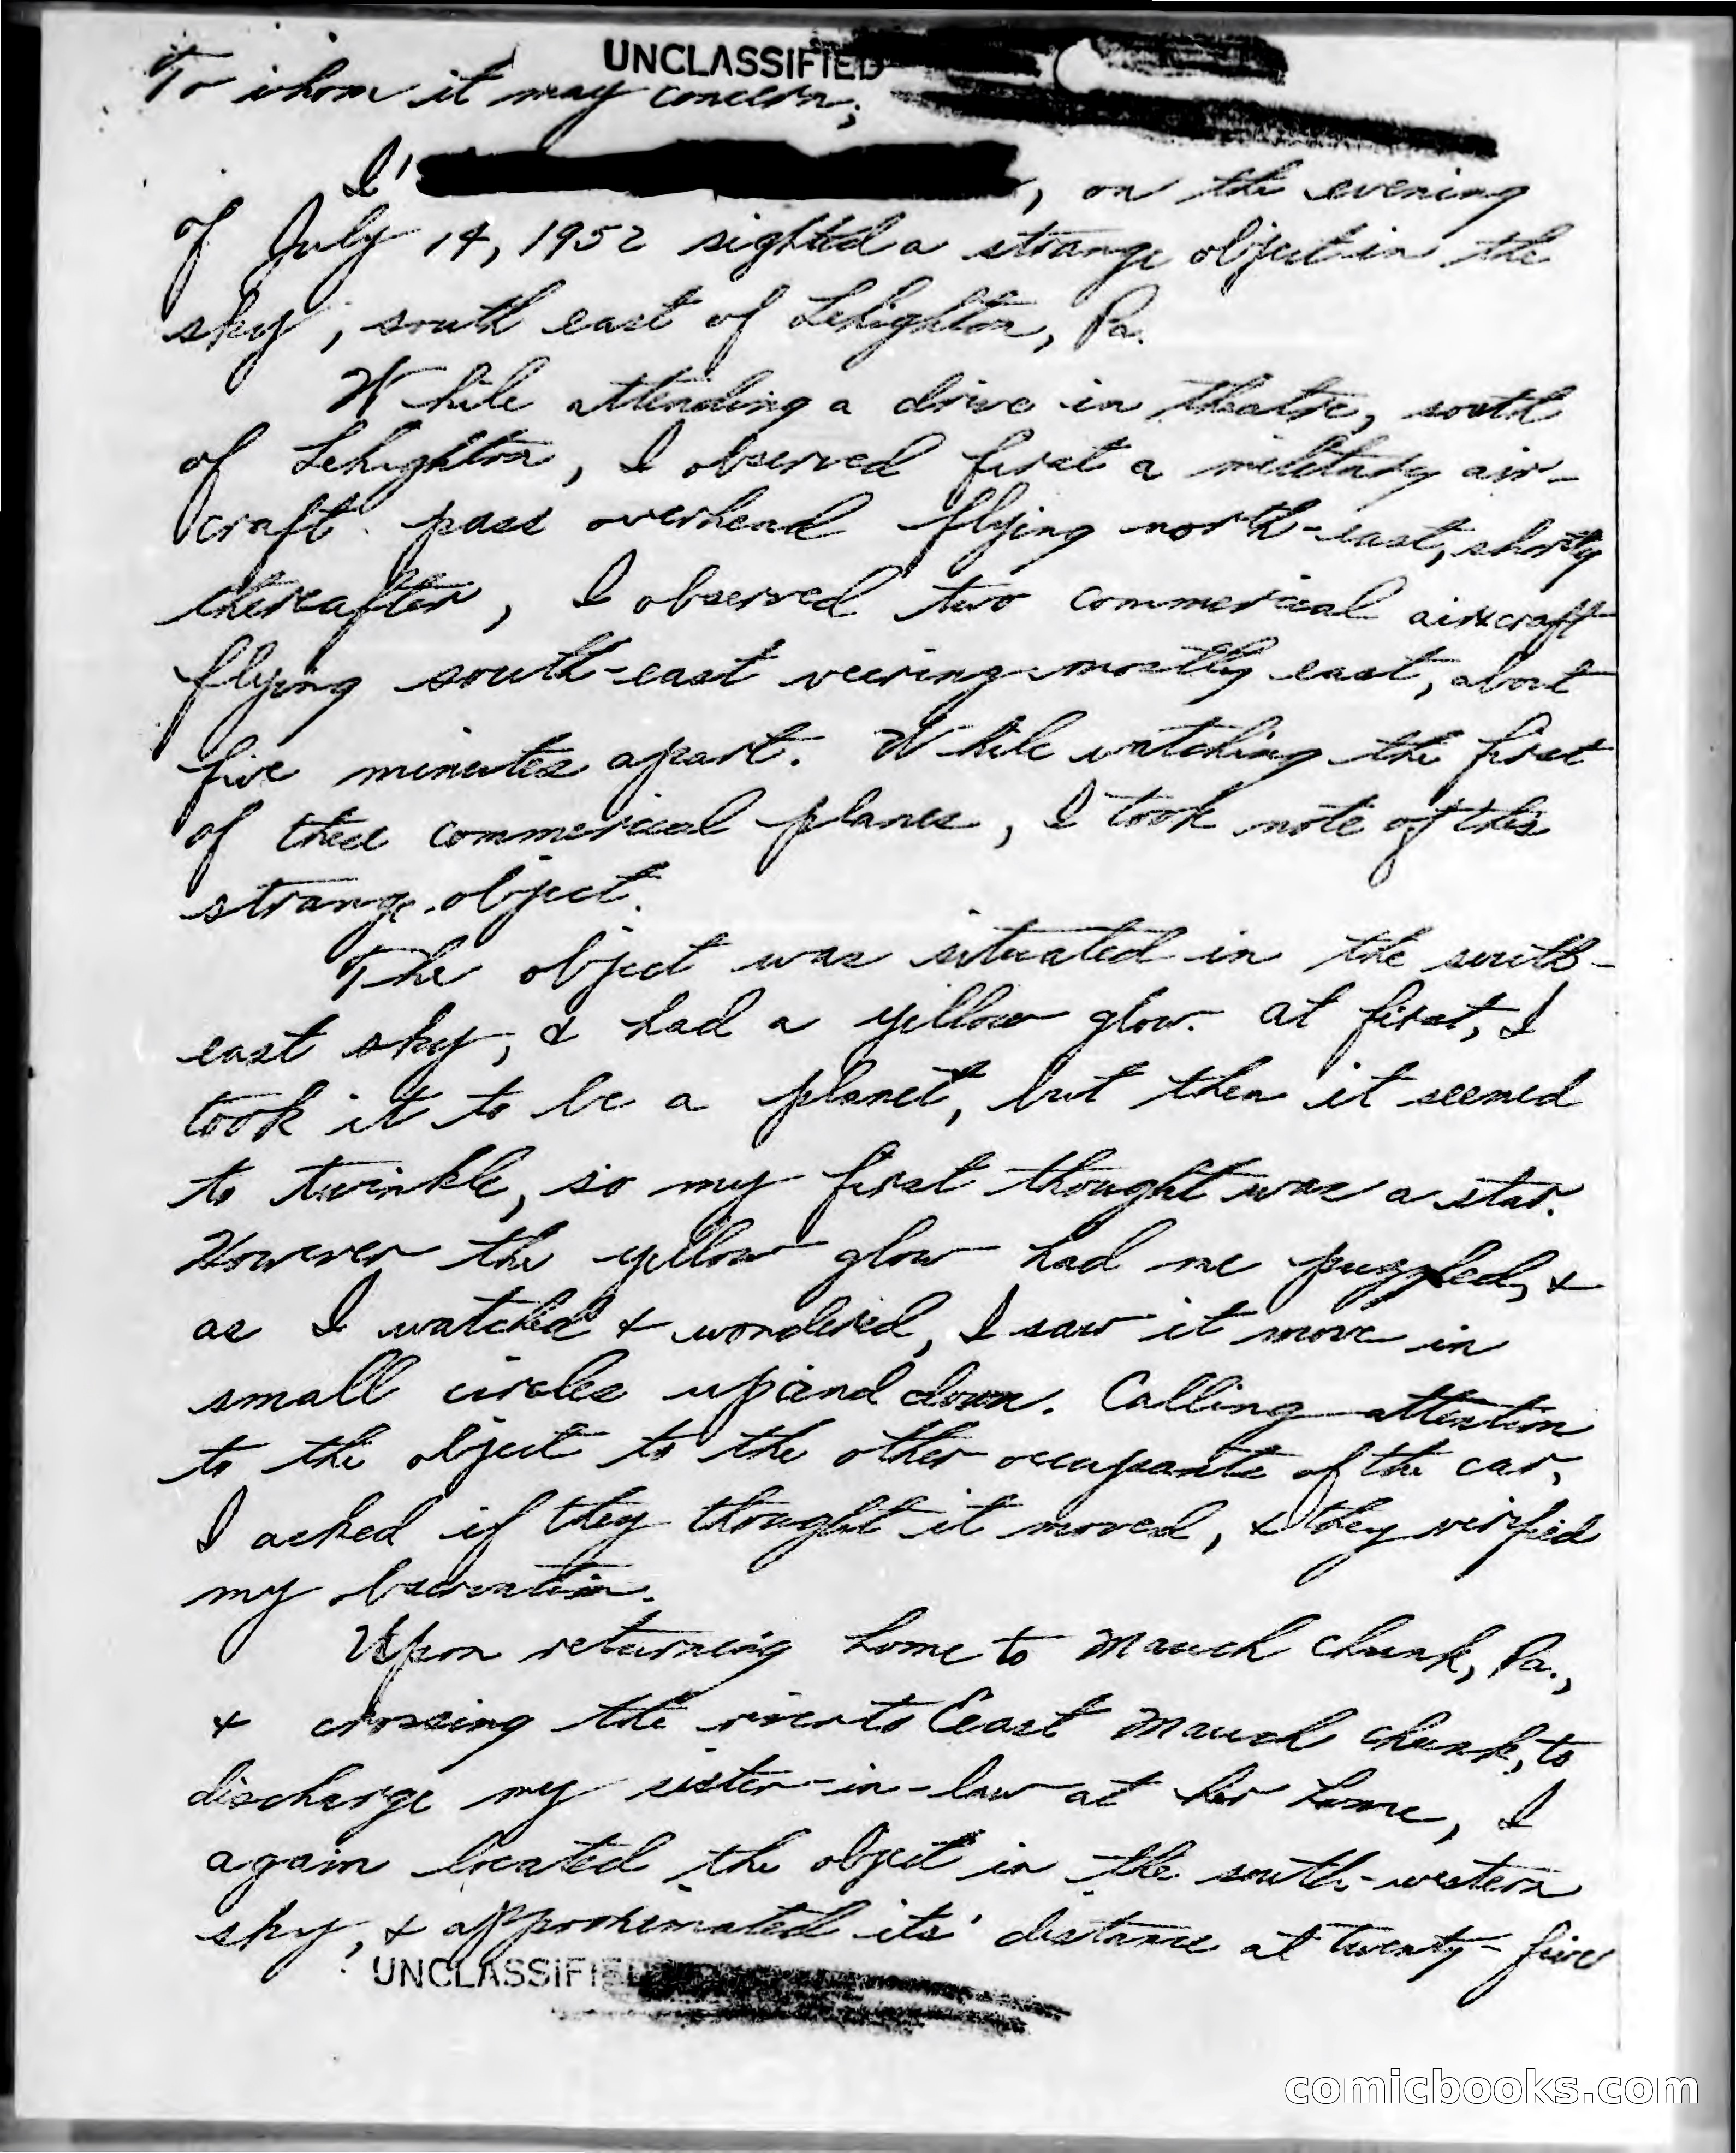 UNCLASSIFIED
To whom it may concern;
I, on the evening
of July 14, 1952 sighted a strange object in the
sky, south east of Lehighton, Pa.
While attending a drive in theatre, south
of Lehighton, I observed first a military air-
craft pass overhead flying north-east, shortly
thereafter, I observed two commercial aircraft
flying south-east veering mostly east, about
five minutes apart. While watching the first
of these commercial planes, I took note of this
strange object.
The object was situated in the south-
east sky, & had a yellow glow. At first, I
took it to be a planet, but then it seemed
to twinkle, so my first thought was a star.
However the yellow glow had me puzzled, &
as I watched & wondered, I saw it move in
small circles up and down. Calling attention
to the object to the other occupants of the car,
I asked if they thought it moved, & they verified
my observation.
Upon returning home to Mauch Chunk, Pa.,
& crossing the river to East Mauch Chunk, to
discharge my sister-in-law at her home, I
again located the object in the south-western
sky, & approximated its' distance at twenty-five
UNCLASSIFIED
comicbooks.com